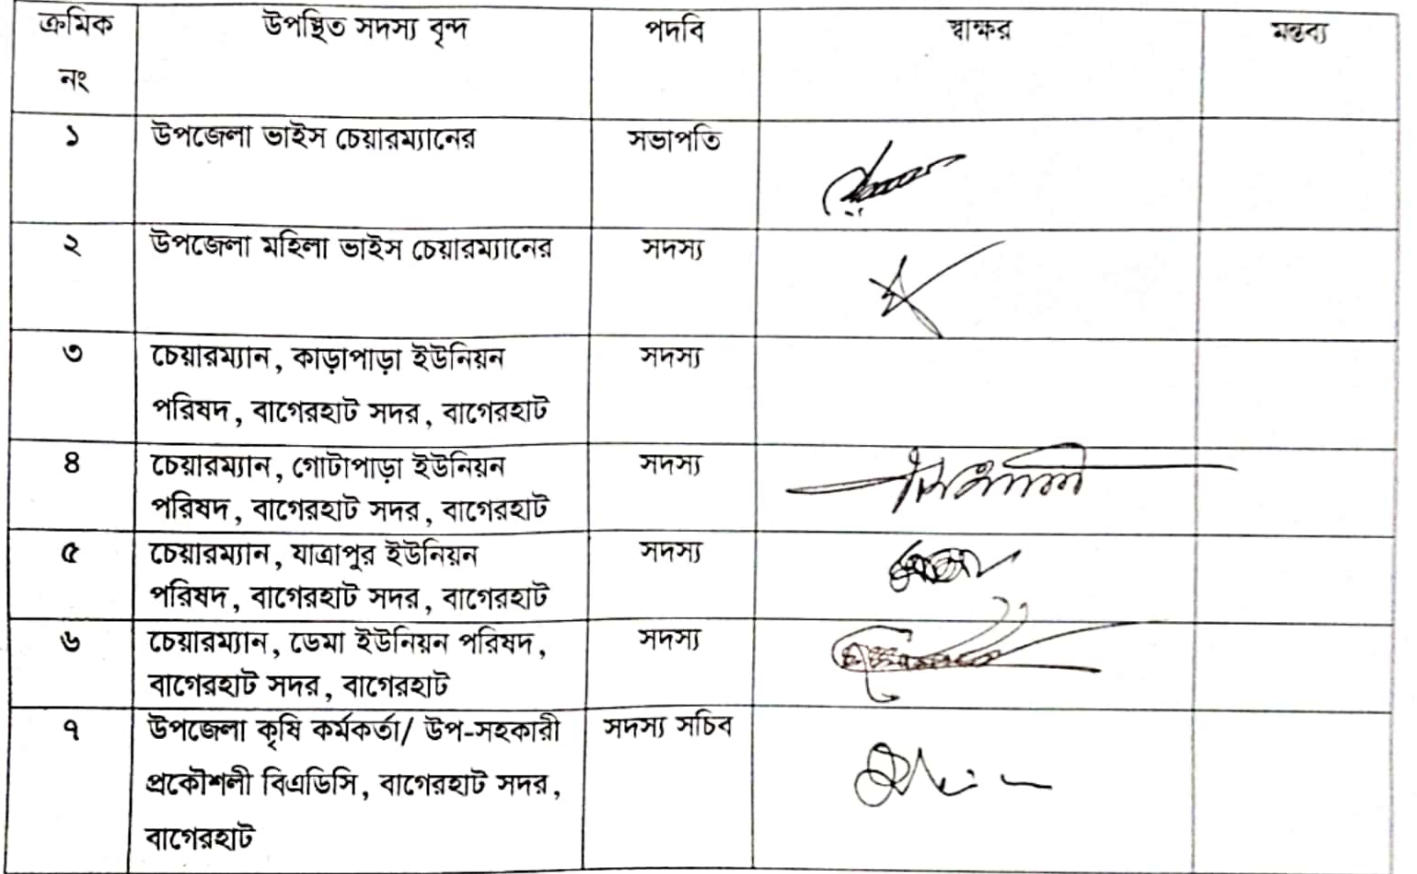 ক্রমিক নং উপস্থিত সদস্য বৃন্দ পদবি স্বাক্ষর মন্তব্য
১ উপজেলা ভাইস চেয়ারম্যানের সভাপতি
২ উপজেলা মহিলা ভাইস চেয়ারম্যানের সদস্য
৩ চেয়ারম্যান, কাড়াপাড়া ইউনিয়ন সদস্য
পরিষদ, বাগেরহাট সদর, বাগেরহাট
৪ চেয়ারম্যান, গোটাপাড়া ইউনিয়ন সদস্য
পরিষদ, বাগেরহাট সদর, বাগেরহাট
৫ চেয়ারম্যান, যাত্রাপুর ইউনিয়ন সদস্য
পরিষদ, বাগেরহাট সদর, বাগেরহাট
৬ চেয়ারম্যান, ডেমা ইউনিয়ন পরিষদ, সদস্য
বাগেরহাট সদর, বাগেরহাট
৭ উপজেলা কৃষি কর্মকর্তা/ উপ-সহকারী সদস্য সচিব
প্রকৌশলী বিএডিসি, বাগেরহাট সদর,
বাগেরহাট